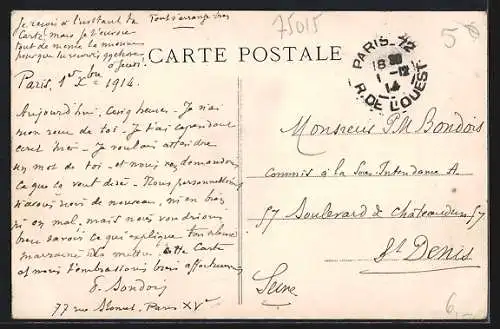 Je reçois à l'instant ta
carte mais je t'envoie
tout de même la mienne
Tout s'arrange bien
75015
5
CARTE POSTALE
PARIS 72
18 30
1 -12
14
R. DE L'OUEST
Paris, 1er Xbre 1914.
Aujourd'hui, cinq heures - Je n'ai
mon reçu de toi - Je t'ai cependant
écrit hier - Je voulais attendre
un mot de toi - et nous
ce que ça veut dire - Nous personnellement
n'avons rien de nouveau, ni en bien
ni en mal, mais nous voudrions
bien savoir ce qui explique ton
cette carte
et nous t'embrassons bien affectueusement
P. Bondois
77 rue Blomet, Paris XVe
Monsieur P M Bondois
Commis à la Sous Intendance A
57 Boulevard de Châteaudun 57
St Denis
Seine
6